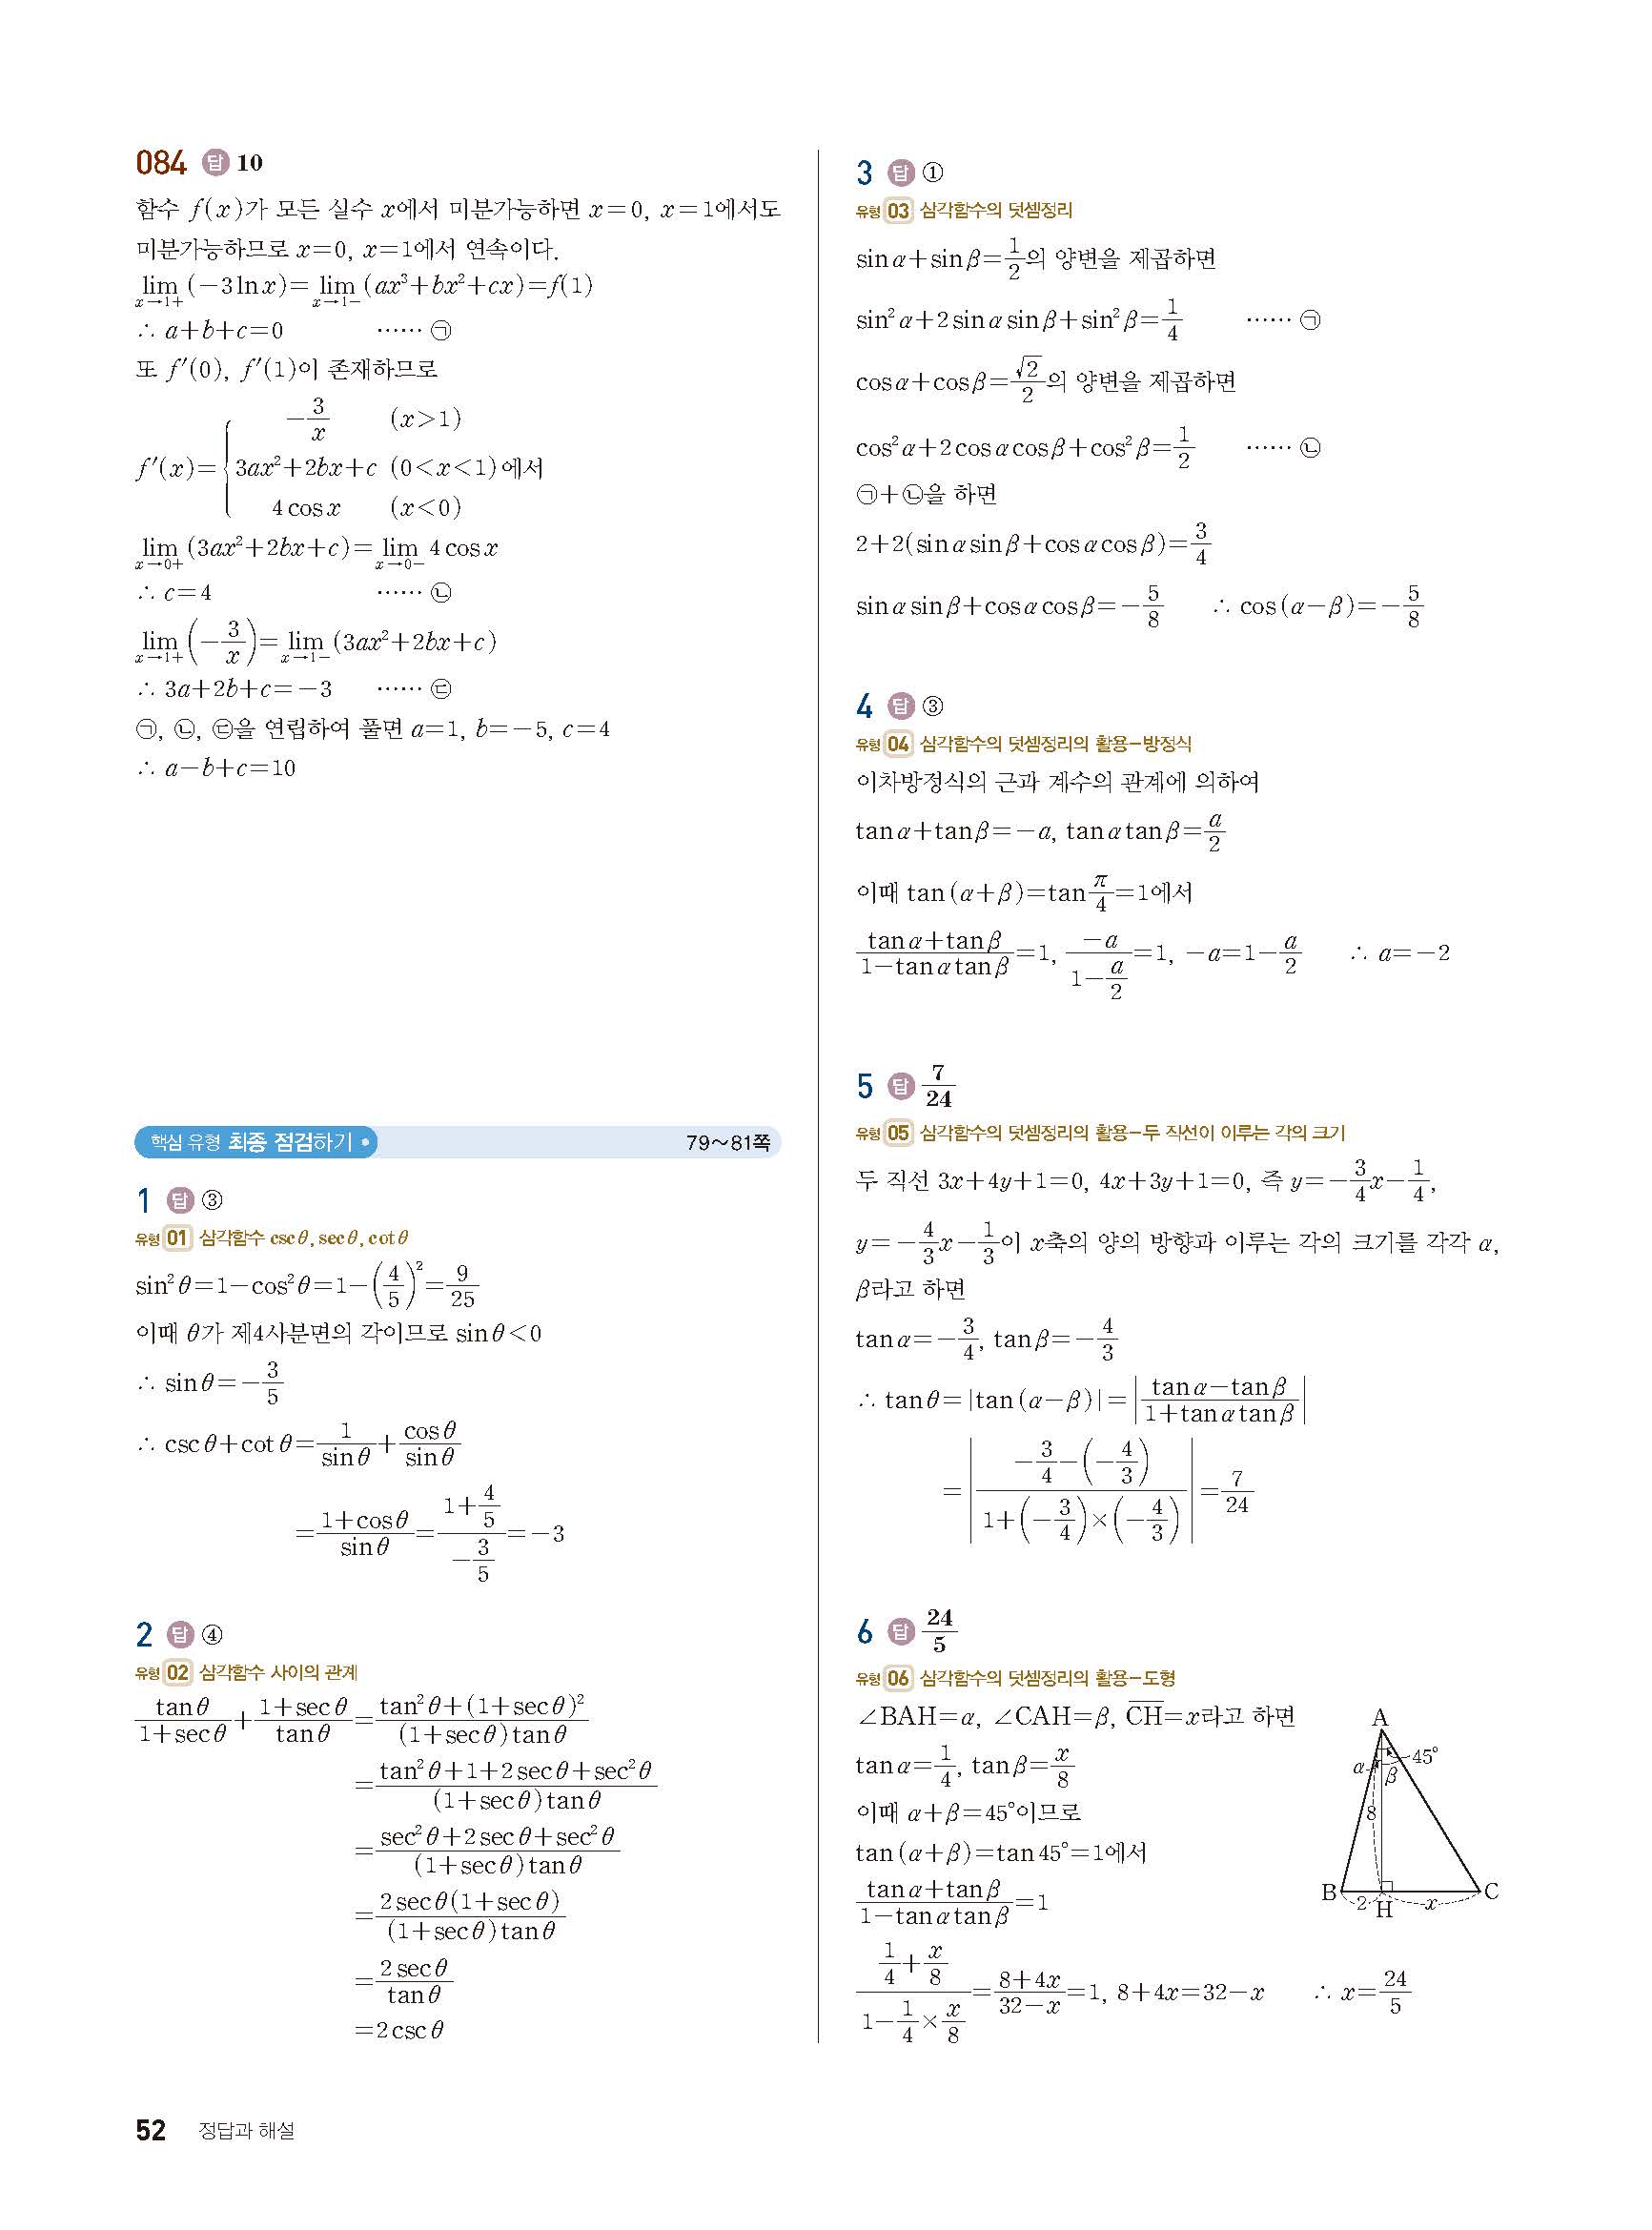 084 답 10
함수 f(x)가 모든 실수 x에서 미분가능하면 x=0, x=1에서도
미분가능하므로 x=0, x=1에서 연속이다.
lim_{x→1+}(-3lnx)=lim_{x→1-}(ax³+bx²+cx)=f(1)
∴ a+b+c=0 …… ㉠
또 f′(0), f′(1)이 존재하므로
-3/x (x>1)
f′(x)={3ax²+2bx+c (0<x<1)에서
4cosx (x<0)
lim_{x→0+}(3ax²+2bx+c)=lim_{x→0-}4cosx
∴ c=4 …… ㉡
lim_{x→1+}(-3/x)=lim_{x→1-}(3ax²+2bx+c)
∴ 3a+2b+c=-3 …… ㉢
㉠, ㉡, ㉢을 연립하여 풀면 a=1, b=-5, c=4
∴ a-b+c=10
핵심 유형 최종 점검하기 79~81쪽
1 답 ③
유형 01 삼각함수 cscθ, secθ, cotθ
sin²θ=1-cos²θ=1-(4/5)²=9/25
이때 θ가 제4사분면의 각이므로 sinθ<0
∴ sinθ=-3/5
∴ cscθ+cotθ=1/sinθ+cosθ/sinθ
=(1+cosθ)/sinθ=(1+4/5)/(-3/5)=-3
2 답 ④
유형 02 삼각함수 사이의 관계
tanθ/(1+secθ)+(1+secθ)/tanθ=(tan²θ+(1+secθ)²)/((1+secθ)tanθ)
=(tan²θ+1+2secθ+sec²θ)/((1+secθ)tanθ)
=(sec²θ+2secθ+sec²θ)/((1+secθ)tanθ)
=2secθ(1+secθ)/((1+secθ)tanθ)
=2secθ/tanθ
=2cscθ
3 답 ①
유형 03 삼각함수의 덧셈정리
sinα+sinβ=1/2의 양변을 제곱하면
sin²α+2sinαsinβ+sin²β=1/4 …… ㉠
cosα+cosβ=√2/2의 양변을 제곱하면
cos²α+2cosαcosβ+cos²β=1/2 …… ㉡
㉠+㉡을 하면
2+2(sinαsinβ+cosαcosβ)=3/4
sinαsinβ+cosαcosβ=-5/8 ∴ cos(α-β)=-5/8
4 답 ③
유형 04 삼각함수의 덧셈정리의 활용-방정식
이차방정식의 근과 계수의 관계에 의하여
tanα+tanβ=-a, tanαtanβ=a/2
이때 tan(α+β)=tanπ/4=1에서
(tanα+tanβ)/(1-tanαtanβ)=1, -a/(1-a/2)=1, -a=1-a/2 ∴ a=-2
5 답 7/24
유형 05 삼각함수의 덧셈정리의 활용-두 직선이 이루는 각의 크기
두 직선 3x+4y+1=0, 4x+3y+1=0, 즉 y=-3/4x-1/4,
y=-4/3x-1/3이 x축의 양의 방향과 이루는 각의 크기를 각각 α,
β라고 하면
tanα=-3/4, tanβ=-4/3
∴ tanθ=|tan(α-β)|=|(tanα-tanβ)/(1+tanαtanβ)|
=|(-3/4-(-4/3))/(1+(-3/4)×(-4/3))|=7/24
6 답 24/5
유형 06 삼각함수의 덧셈정리의 활용-도형
∠BAH=α, ∠CAH=β, C̅H̅=x라고 하면
tanα=1/4, tanβ=x/8
이때 α+β=45°이므로
tan(α+β)=tan45°=1에서
(tanα+tanβ)/(1-tanαtanβ)=1
(1/4+x/8)/(1-1/4×x/8)=(8+4x)/(32-x)=1, 8+4x=32-x ∴ x=24/5
A
45°
α
β
8
B
2
H
x
C
52 정답과 해설